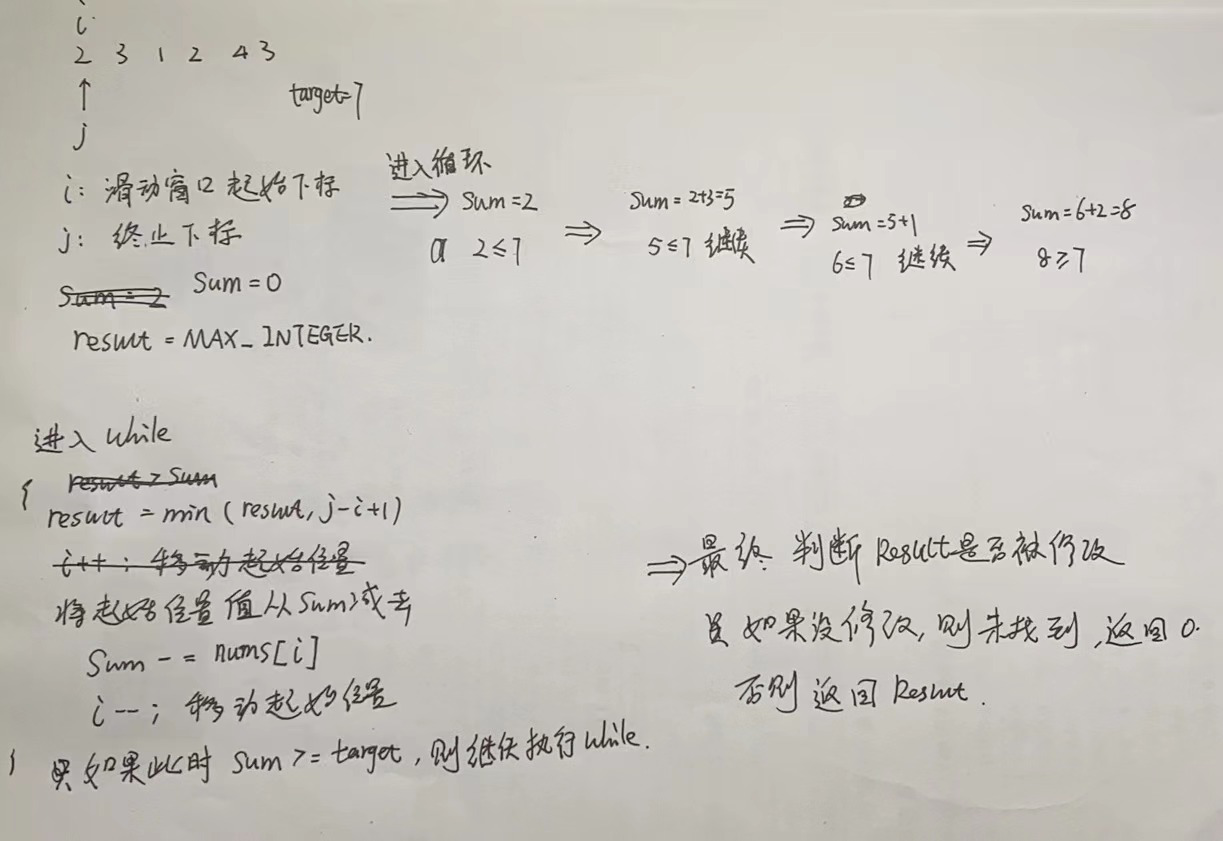 i
2 3 1 2 4 3
↑
target=7
j
i: 滑动窗口起始下标
j: 终止下标
Sum = 2 Sum = 0
result = MAX_INTEGER.
进入循环
⇒ Sum = 2
2 ≤ 7
⇒ Sum = 2+3=5
5 ≤ 7 继续
⇒ Sum = 5+1
6 ≤ 7 继续
⇒ Sum = 6+2=8
8 ≥ 7
进入 while
{ result > Sum
result = min (result, j-i+1)
i++; 移动起始位置
将起始位置值从Sum减去
Sum -= nums[i]
i--; 移动起始位置
} 如果此时 Sum >= target, 则继续执行while.
⇒ 最终 判断Result是否被修改
如果没修改, 则未找到, 返回0.
否则返回 Result.